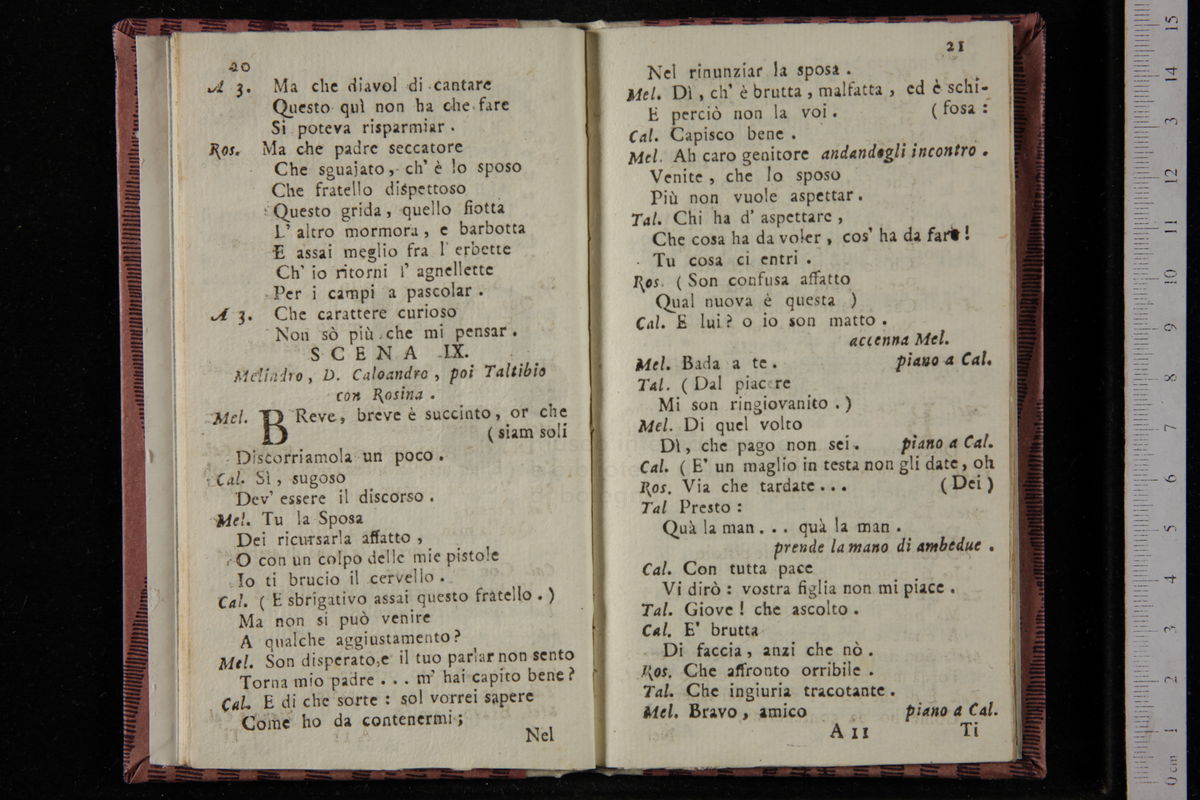 20
A 3. Ma che diavol di cantare
Questo quì non ha che fare
Si poteva risparmiar .
Ros. Ma che padre seccatore
Che sguajato, ch' è lo sposo
Che fratello dispettoso
Questo grida, quello fiotta
L' altro mormora, e barbotta
E assai meglio fra l' erbette
Ch' io ritorni l' agnellette
Per i campi a pascolar .
A 3. Che carattere curioso
Non sò più che mi pensar .
SCENA IX.
Meliadro, D. Caloandro, poi Taltibio
con Rosina .
Mel. BReve, breve è succinto, or che
( siam soli
Discorriamola un poco .
Cal. Sì, sugoso
Dev' essere il discorso .
Mel. Tu la Sposa
Dei ricusarla affatto ,
O con un colpo delle mie pistole
Io ti brucio il cervello .
Cal. ( E sbrigativo assai questo fratello . )
Ma non si può venire
A qualche aggiustamento?
Mel. Son disperato,e il tuo parlar non sento
Torna mio padre . . . m' hai capito bene?
Cal. E di che sorte : sol vorrei sapere
Come ho da contenermi ;
Nel
21
Nel rinunziar la sposa .
Mel. Dì , ch' è brutta , malfatta , ed è schi-
E perciò non la voi . ( fosa :
Cal. Capisco bene .
Mel. Ah caro genitore andandogli incontro .
Venite , che lo sposo
Più non vuole aspettar .
Tal. Chi ha d' aspettare ,
Che cosa ha da voler , cos' ha da fare !
Tu cosa ci entri .
Ros. ( Son confusa affatto
Qual nuova è questa )
Cal. E lui? o io son matto .
accenna Mel.
Mel. Bada a te . piano a Cal.
Tal. ( Dal piacere
Mi son ringiovanito . )
Mel. Di quel volto
Dì, che pago non sei . piano a Cal.
Cal. ( E' un maglio in testa non gli date, oh
Ros. Via che tardate . . . ( Dei )
Tal Presto :
Quà la man . . . quà la man .
prende la mano di ambedue .
Cal. Con tutta pace
Vi dirò : vostra figlia non mi piace .
Tal. Giove ! che ascolto .
Cal. E' brutta
Di faccia , anzi che nò .
Ros. Che affronto orribile .
Tal. Che ingiuria tracotante .
Mel. Bravo , amico piano a Cal.
A 11 Ti
0 cm 1 2 3 4 5 6 7 8 9 10 11 12 13 14 15